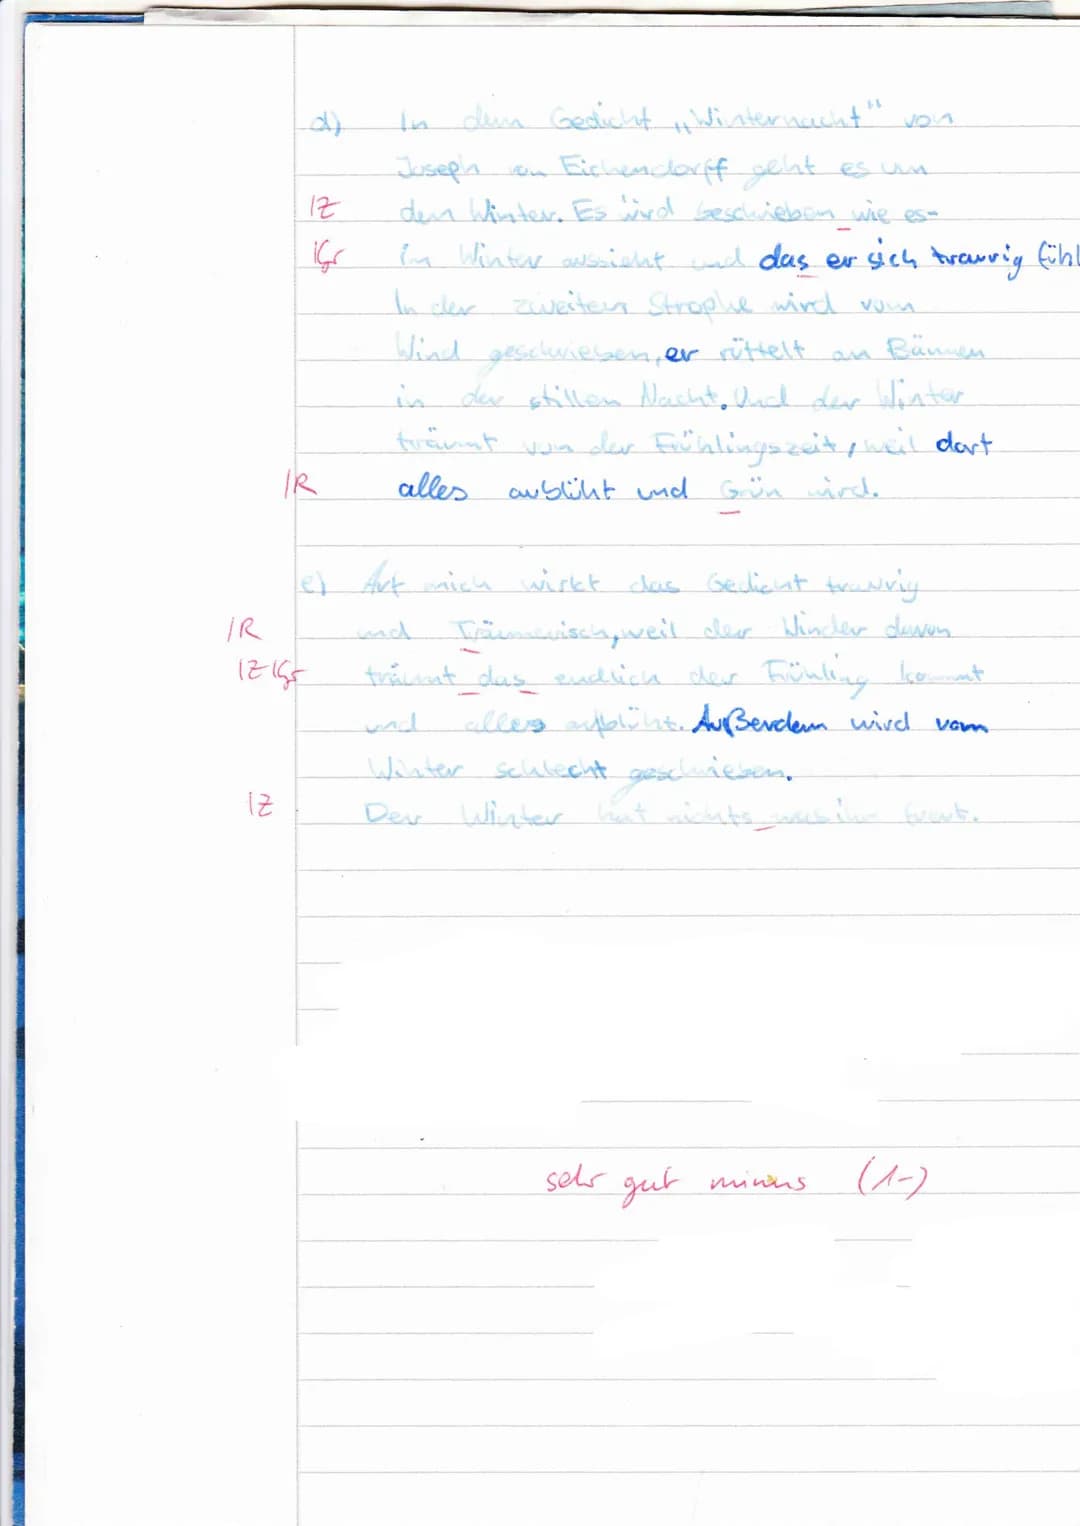 d) In dem Gedicht „Winternacht" von
Joseph von Eichendorff geht es um
|Z dem Winter. Es wird beschrieben wie es
|Gr im Winter aussieht und das er sich traurig fühl
In der zweiten Strophe wird vom
Wind geschrieben, er rüttelt an Bäumen
in der stillen Nacht. Und der Winter
träumt von der Frühlingszeit, weil dort
|R alles aublüht und Grün wird.
e) Auf mich wirkt das Gedicht traurig
|R und Träumerisch, weil der Winder davon
|Z |Gr träumt das endlich der Frühling kommt
und alles aufblüht. Außerdem wird vom
Winter schlecht geschrieben.
|Z Der Winter hat nichts was ihn freut.
sehr gut minus (1-)